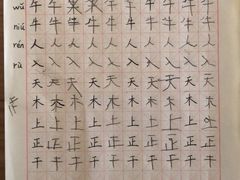 wǔ 午 午 午 午 午 午 午 午
niú 牛 牛 牛 牛 牛 牛 牛 牛 牛
rén 人 人 人 人 人 人 人 人 人
rù 入 入 入 入 入 入 入 入 入
天 天 天 天 天 天 天 天 天
木 木 木 木 木 木 木 木 木
上 上 上 上 上 上 上 上 上
正 正 正 正 正 正 正 正 正
干 干 干 干 干 干 干 干 干